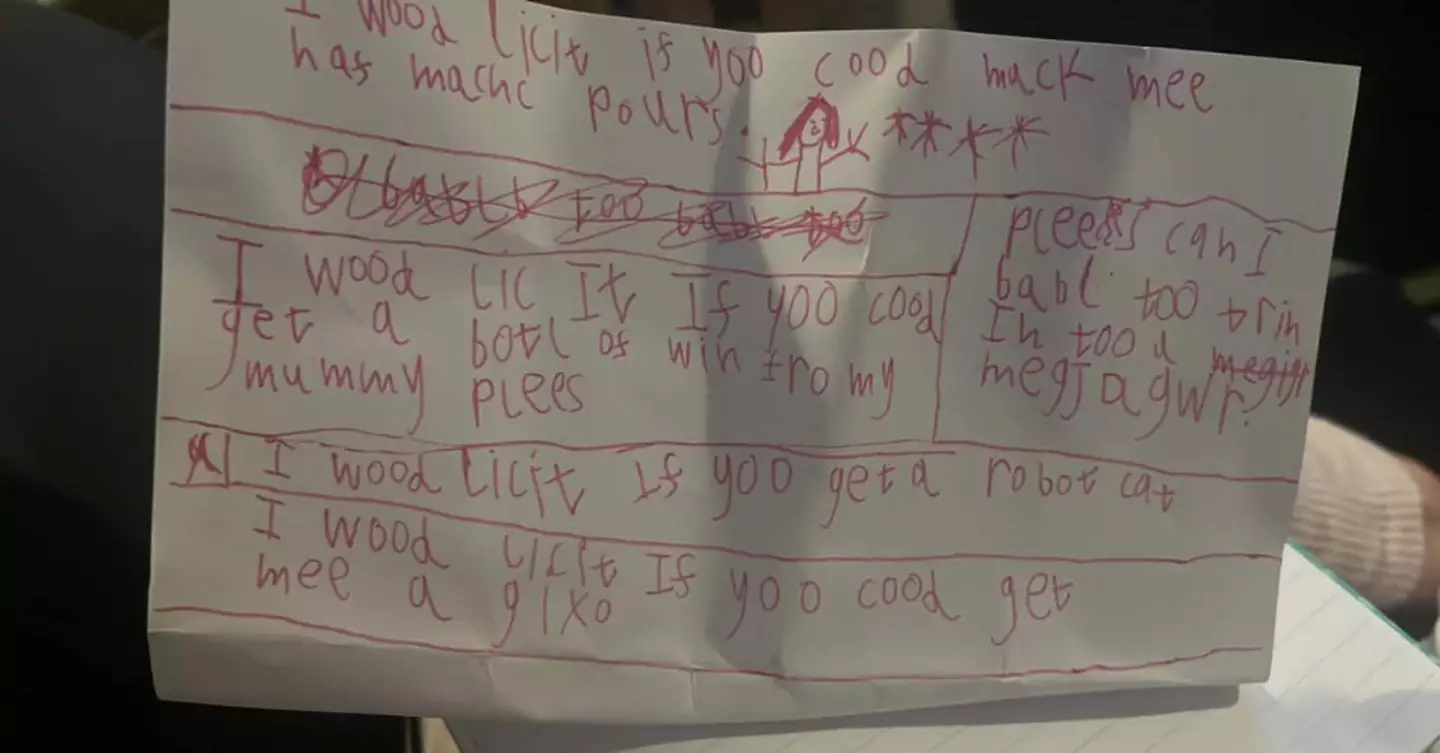 I wood licit if yoo cood mack mee
has machc pours.
too babl too
I wood lic It If yoo cood
get a botl of win from my
mummy plees
pleeds can I
babl too trin
In too a
megjagwr.
I wood licit If yoo get a robot cat
I wood licit If yoo cood get
mee a gixo